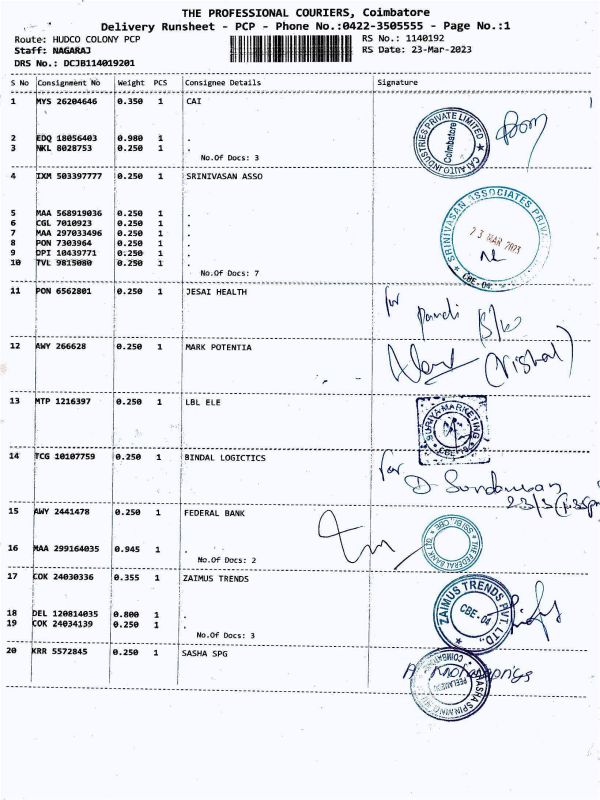 THE PROFESSIONAL COURIERS, Coimbatore
Delivery Runsheet - PCP - Phone No.:0422-3505555 - Page No.:1
Route: HUDCO COLONY PCP RS No.: 1140192
Staff: NAGARAJ RS Date: 23-Mar-2023
DRS No.: DCJB114019201
S No Consignment No Weight PCS Consignee Details Signature
1 MYS 26204646 0.350 1 CAI
CAI AUTO INDUSTRIES PRIVATE LIMITED
Coimbatore
2 EDQ 18056403 0.980 1 .
3 NKL 8028753 0.250 1 .
No.Of Docs: 3
4 IXM 503397777 0.250 1 SRINIVASAN ASSO
SRINIVASAN ASSOCIATES PRIVATE
23 MAR 2023
CBE-04.
5 MAA 568919036 0.250 1 .
6 CGL 7010923 0.250 1 .
7 MAA 297033496 0.250 1 .
8 PON 7303964 0.250 1 .
9 DPI 10439771 0.250 1 .
10 TVL 9815080 0.250 1 .
No.Of Docs: 7
11 PON 6562801 0.250 1 JESAI HEALTH
for
12 AWY 266628 0.250 1 MARK POTENTIA
(Vishal)
13 MTP 1216397 0.250 1 LBL ELE
SURIYA MARKETING
14 TCG 10107759 0.250 1 BINDAL LOGICTICS
for
23/3
15 AWY 2441478 0.250 1 FEDERAL BANK
THE FEDERAL BANK LTD.
16 MAA 299164035 0.945 1 .
No.Of Docs: 2
17 COK 24030336 0.355 1 ZAIMUS TRENDS
ZAIMUS TRENDS PVT. LTD.,
CBE-04
18 DEL 120814035 0.800 1 .
19 COK 24034139 0.250 1 .
No.Of Docs: 3
20 KRR 5572845 0.250 1 SASHA SPG